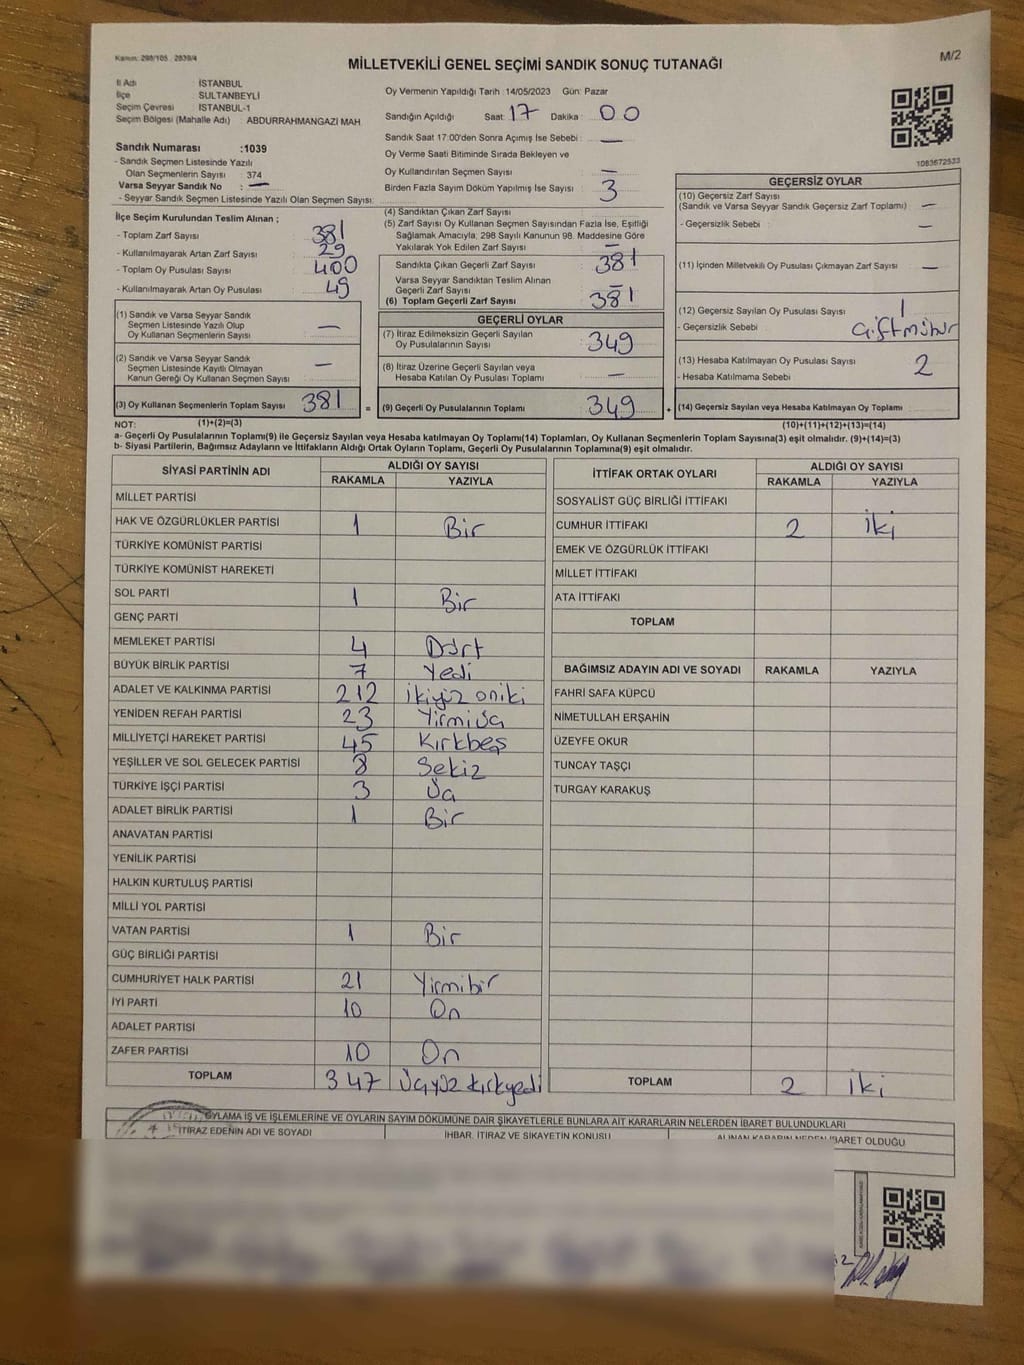 Kanun: 298/105 . 2839/4
M/2
MİLLETVEKİLİ GENEL SEÇİMİ SANDIK SONUÇ TUTANAĞI
İl Adı İSTANBUL
İlçe SULTANBEYLİ
Seçim Çevresi İSTANBUL-1
Seçim Bölgesi (Mahalle Adı) : ABDURRAHMANGAZİ MAH.
Oy Vermenin Yapıldığı Tarih :14/05/2023 Gün: Pazar
Sandığın Açıldığı Saat: 17 Dakika : 00
Sandık Saat 17:00'den Sonra Açımış İse Sebebi : —
Oy Verme Saati Bitiminde Sırada Bekleyen ve
Oy Kullandırılan Seçmen Sayısı : —
Birden Fazla Sayım Döküm Yapılmış İse Sayısı : 3
1083672533
Sandık Numarası :1039
- Sandık Seçmen Listesinde Yazılı
Olan Seçmenlerin Sayısı : 374
Varsa Seyyar Sandık No : —
- Seyyar Sandık Seçmen Listesinde Yazılı Olan Seçmen Sayısı:
İlçe Seçim Kurulundan Teslim Alınan ;
- Toplam Zarf Sayısı : 381
- Kullanılmayarak Artan Zarf Sayısı : 29
- Toplam Oy Pusulası Sayısı : 400
- Kullanılmayarak Artan Oy Pusulası : 49
(1) Sandık ve Varsa Seyyar Sandık
Seçmen Listesinde Yazılı Olup
Oy Kullanan Seçmenlerin Sayısı —
(2) Sandık ve Varsa Seyyar Sandık
Seçmen Listesinde Kayıtlı Olmayan
Kanun Gereği Oy Kullanan Seçmen Sayısı —
(3) Oy Kullanan Seçmenlerin Toplam Sayısı 381 =
(1)+(2)=(3)
(4) Sandıktan Çıkan Zarf Sayısı
(5) Zarf Sayısı Oy Kullanan Seçmen Sayısından Fazla İse, Eşitliği
Sağlamak Amacıyla, 298 Sayılı Kanunun 98. Maddesine Göre
Yakılarak Yok Edilen Zarf Sayısı —
Sandıkta Çıkan Geçerli Zarf Sayısı 381
Varsa Seyyar Sandıktan Teslim Alınan
Geçerli Zarf Sayısı —
(6) Toplam Geçerli Zarf Sayısı 381
GEÇERLİ OYLAR
(7) İtiraz Edilmeksizin Geçerli Sayılan
Oy Pusulalarının Sayısı 349
(8) İtiraz Üzerine Geçerli Sayılan veya
Hesaba Katılan Oy Pusulası Toplamı —
(9) Geçerli Oy Pusulalarının Toplamı 349 +
GEÇERSİZ OYLAR
(10) Geçersiz Zarf Sayısı
(Sandık ve Varsa Seyyar Sandık Geçersiz Zarf Toplamı) —
- Geçersizlik Sebebi : —
(11) İçinden Milletvekili Oy Pusulası Çıkmayan Zarf Sayısı —
(12) Geçersiz Sayılan Oy Pusulası Sayısı 1
- Geçersizlik Sebebi : Çift mühür
(13) Hesaba Katılmayan Oy Pusulası Sayısı 2
- Hesaba Katılmama Sebebi :
(14) Geçersiz Sayılan veya Hesaba Katılmayan Oy Toplamı
(10)+(11)+(12)+(13)=(14)
NOT:
a- Geçerli Oy Pusulalarının Toplamı(9) ile Geçersiz Sayılan veya Hesaba katılmayan Oy Toplamı(14) Toplamları, Oy Kullanan Seçmenlerin Toplam Sayısına(3) eşit olmalıdır. (9)+(14)=(3)
b- Siyasi Partilerin, Bağımsız Adayların ve İttifakların Aldığı Ortak Oyların Toplamı, Geçerli Oy Pusulalarının Toplamına(9) eşit olmalıdır.
SİYASİ PARTİNİN ADI ALDIĞI OY SAYISI
RAKAMLA YAZIYLA
MİLLET PARTİSİ
HAK VE ÖZGÜRLÜKLER PARTİSİ 1 Bir
TÜRKİYE KOMÜNİST PARTİSİ
TÜRKİYE KOMÜNİST HAREKETİ
SOL PARTİ 1 Bir
GENÇ PARTİ
MEMLEKET PARTİSİ 4 Dört
BÜYÜK BİRLİK PARTİSİ 7 Yedi
ADALET VE KALKINMA PARTİSİ 212 ikiyüz oniki
YENİDEN REFAH PARTİSİ 23 Yirmi üç
MİLLİYETÇİ HAREKET PARTİSİ 45 Kırkbeş
YEŞİLLER VE SOL GELECEK PARTİSİ 8 Sekiz
TÜRKİYE İŞÇİ PARTİSİ 3 Üç
ADALET BİRLİK PARTİSİ 1 Bir
ANAVATAN PARTİSİ
YENİLİK PARTİSİ
HALKIN KURTULUŞ PARTİSİ
MİLLİ YOL PARTİSİ
VATAN PARTİSİ 1 Bir
GÜÇ BİRLİĞİ PARTİSİ
CUMHURİYET HALK PARTİSİ 21 Yirmibir
İYİ PARTİ 10 On
ADALET PARTİSİ
ZAFER PARTİSİ 10 On
TOPLAM 347 Üçyüz kırkyedi
İTTİFAK ORTAK OYLARI ALDIĞI OY SAYISI
RAKAMLA YAZIYLA
SOSYALİST GÜÇ BİRLİĞİ İTTİFAKI
CUMHUR İTTİFAKI 2 iki
EMEK VE ÖZGÜRLÜK İTTİFAKI
MİLLET İTTİFAKI
ATA İTTİFAKI
TOPLAM
BAĞIMSIZ ADAYIN ADI VE SOYADI RAKAMLA YAZIYLA
FAHRİ SAFA KÜPCÜ
NİMETULLAH ERŞAHİN
ÜZEYFE OKUR
TUNCAY TAŞÇI
TURGAY KARAKUŞ
TOPLAM 2 iki
OYLAMA İŞ VE İŞLEMLERİNE VE OYLARIN SAYIM DÖKÜMÜNE DAİR ŞİKAYETLERLE BUNLARA AİT KARARLARIN NELERDEN İBARET BULUNDUKLARI
İTİRAZ EDENİN ADI VE SOYADI İHBAR, İTİRAZ VE ŞİKAYETİN KONUSU ALINAN KARARIN NEDEN İBARET OLDUĞU